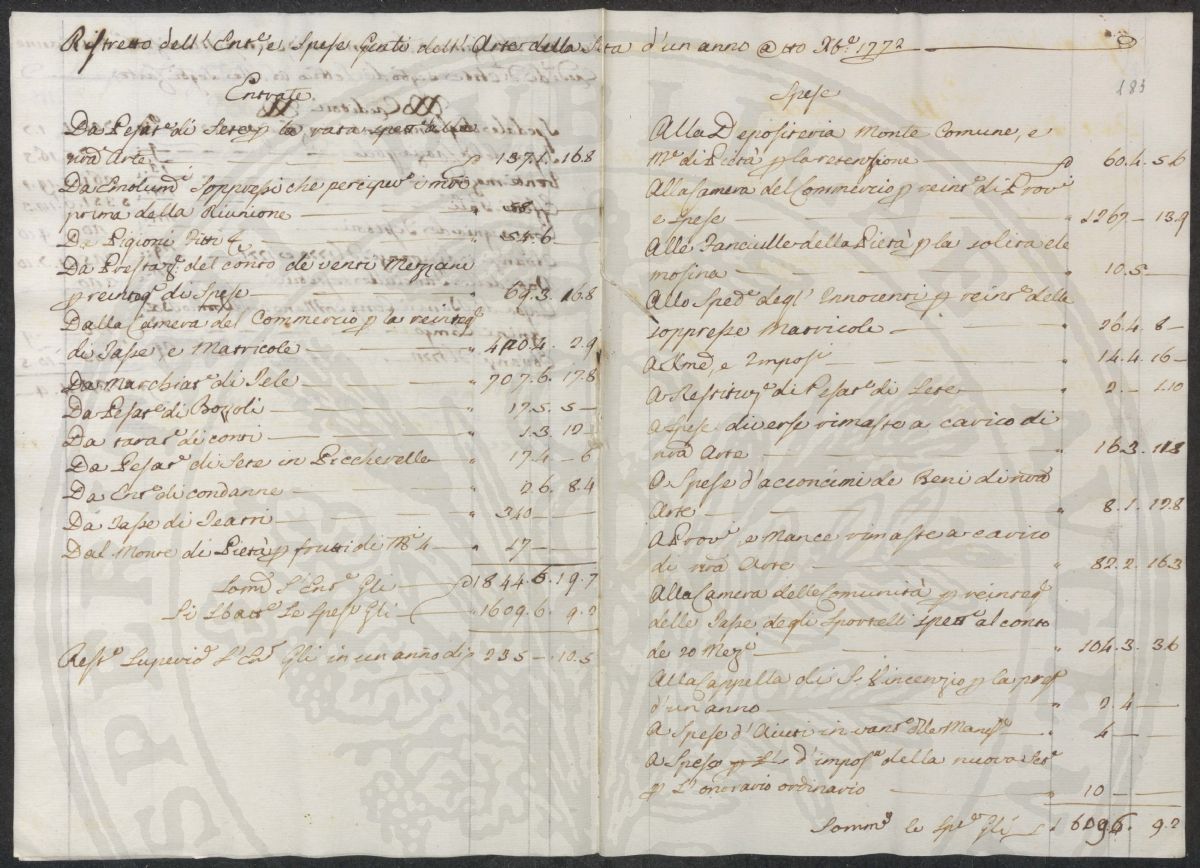 Ristretto dell'Ent.e e Spese Gnli dell'Arte della Seta d'un anno @ tto Xb.e 1772
183
Entrate
Da Pesat.e di Sete p la rata spett.e alla
nrã Arte 137.1.16.8
Da Emolum.ti Soppressi che percipev.o i mri
prima della Riunione
Da Pigioni Fitti 54.6
Da Prestaz.e del conto de venti Mezzani
p reinteg.e di Spese 69.3.16.8
Dalla Camera del Commercio p la reinteg.e
di Tasse e Matricole 2.9
Da Marchiat.e di Tele 707.6.17.8
Da Pesat.e di Bozzoli 17.5.5
Da tarat.e di conti 1.3.10
Da Pesat.e di Sete in Piccherelle 17.4.6
Da Ent.e di condanne 26.8.4
Da Tasse di Teatri 340
Dal Monte di Pietà p frutti di M.e 4 17
Som.o l'Ent.e Gli 1844.6.19.7
Si Sbatt.o le Spese Gli 1609.6.9.2
Rest.o Superior l'Ent Gli in un anno di 235.10.5
Spese
Alla Depositeria Monte Comune, e
M.e di Pietà p la retenzione 604.5.6
Alla Camera del Commercio p reint.e di Prov.i
e Spese 1267.13.9
Alle Fanciulle della Pietà p la solita ele
mosina 10.5
Allo Sped.e degl'Innocenti p reint.e delle
soppresse Matricole 26.4.8
A Xme, e Imposi 14.4.16
A Restituz.e di Pesat.e di Sete 2.1.10
A Spese diverse rimaste a carico di
nrã Arte 16.3.11.8
A Spese d'acconcimi de Beni di nrã
Arte 8.1.17.8
A Prov.i e Mance rimaste a carico
di nrã Arte 82.2.16.3
Alla Camera delle Comunità p reinteg.e
delle Tasse degli Sportelli spett.e al conto
de 20 Mez.i 104.3.3.6
Alla Cappella di S. Vincenzio p la pres.e
d'un anno 2.4
A Spese d'Aiuti in 4
A Spese d'impos.e della nuova
p l'onorario ordinario 10
Somm.o le Spe.e Gli 1609.6.9.2